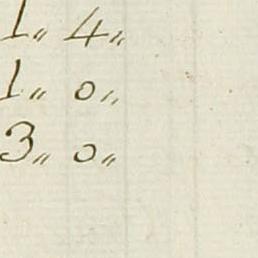 1" 4"
1" 0"
3" 0"